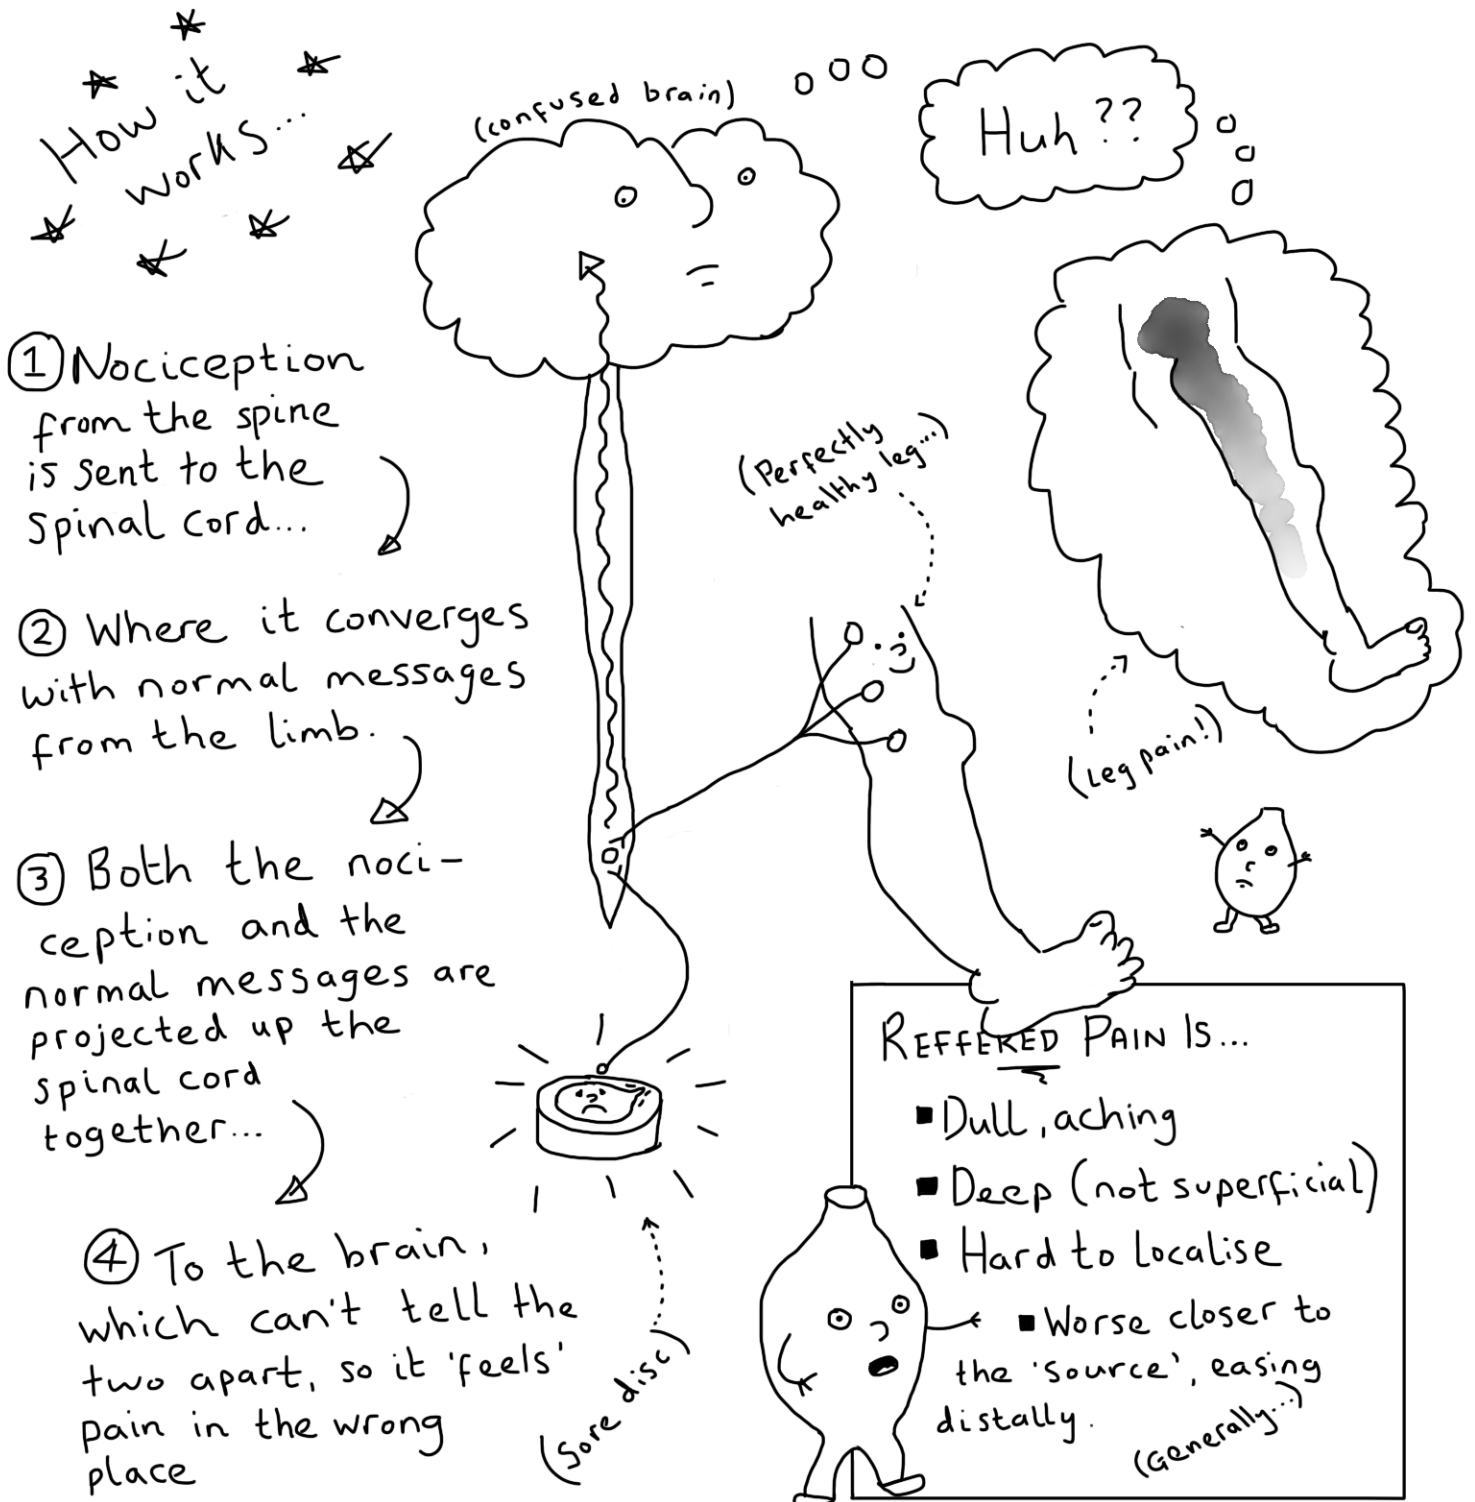 How it
works...
(confused brain)
Huh??
① Nociception
from the spine
is sent to the
spinal cord...
② Where it converges
with normal messages
from the limb.
③ Both the noci-
ception and the
normal messages are
projected up the
spinal cord
together...
④ To the brain,
which can't tell the
two apart, so it 'feels'
pain in the wrong
place
(Perfectly
healthy leg...)
(Leg pain!)
(Sore disc)
REFFERED PAIN IS...
■ Dull, aching
■ Deep (not superficial)
■ Hard to localise
■ Worse closer to
the 'source', easing
distally.
(Generally...)